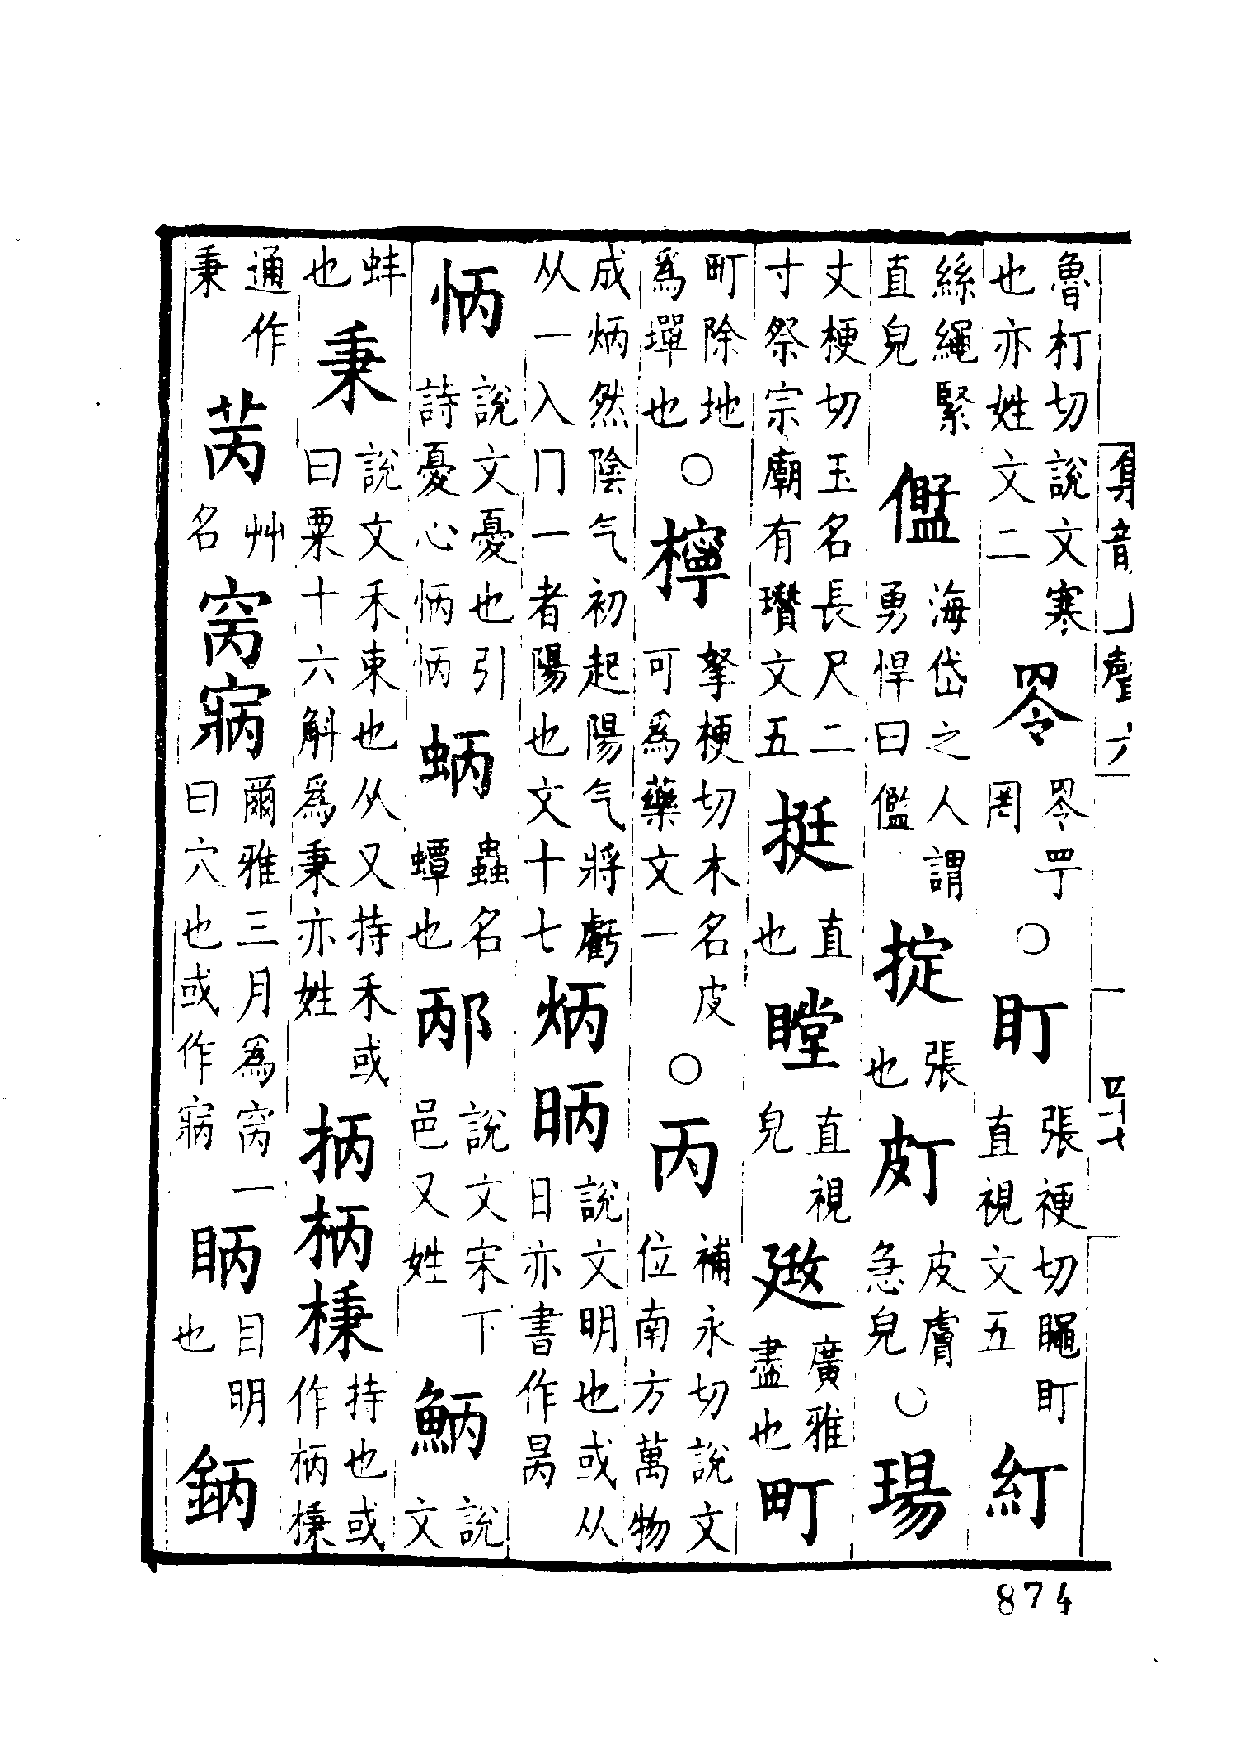 魯打切說文寒也亦姓文二 㒓 䍅䍓罔 ○ 盯 張梗切矃盯直視文五 糽
絲繩緊直皃 㒓 海岱之人謂勇悍曰㒓 掟 張也 㽿 皮膚急皃 ○ 瑒
丈梗切玉名長尺二寸祭宗廟有瓚文五 挺 直也 瞠 直視皃 廵 廣雅盡也 町
町除地爲墠也 ○ 檸 拏梗切木名皮可爲藥文一 ○ 丙 補永切說文位南方萬物
成炳然陰气初起陽气將虧从一入冂一者陽也文十七 炳 昞 說文明也或从日亦書作昺
怲 說文憂也引詩憂心怲怲 蛃 蟲名蟫也 邴 說文宋下邑又姓 鮩 說文
蚌也 秉 說文禾束也从又持禾或曰粟十六斛爲秉亦姓 抦 柄 棅 持也或作柄棅
通作秉 苪 艸名 窉 寎 爾雅三月爲窉一曰穴也或作寎 眪 目明也 鈵
集韻 聲六
四十七
874